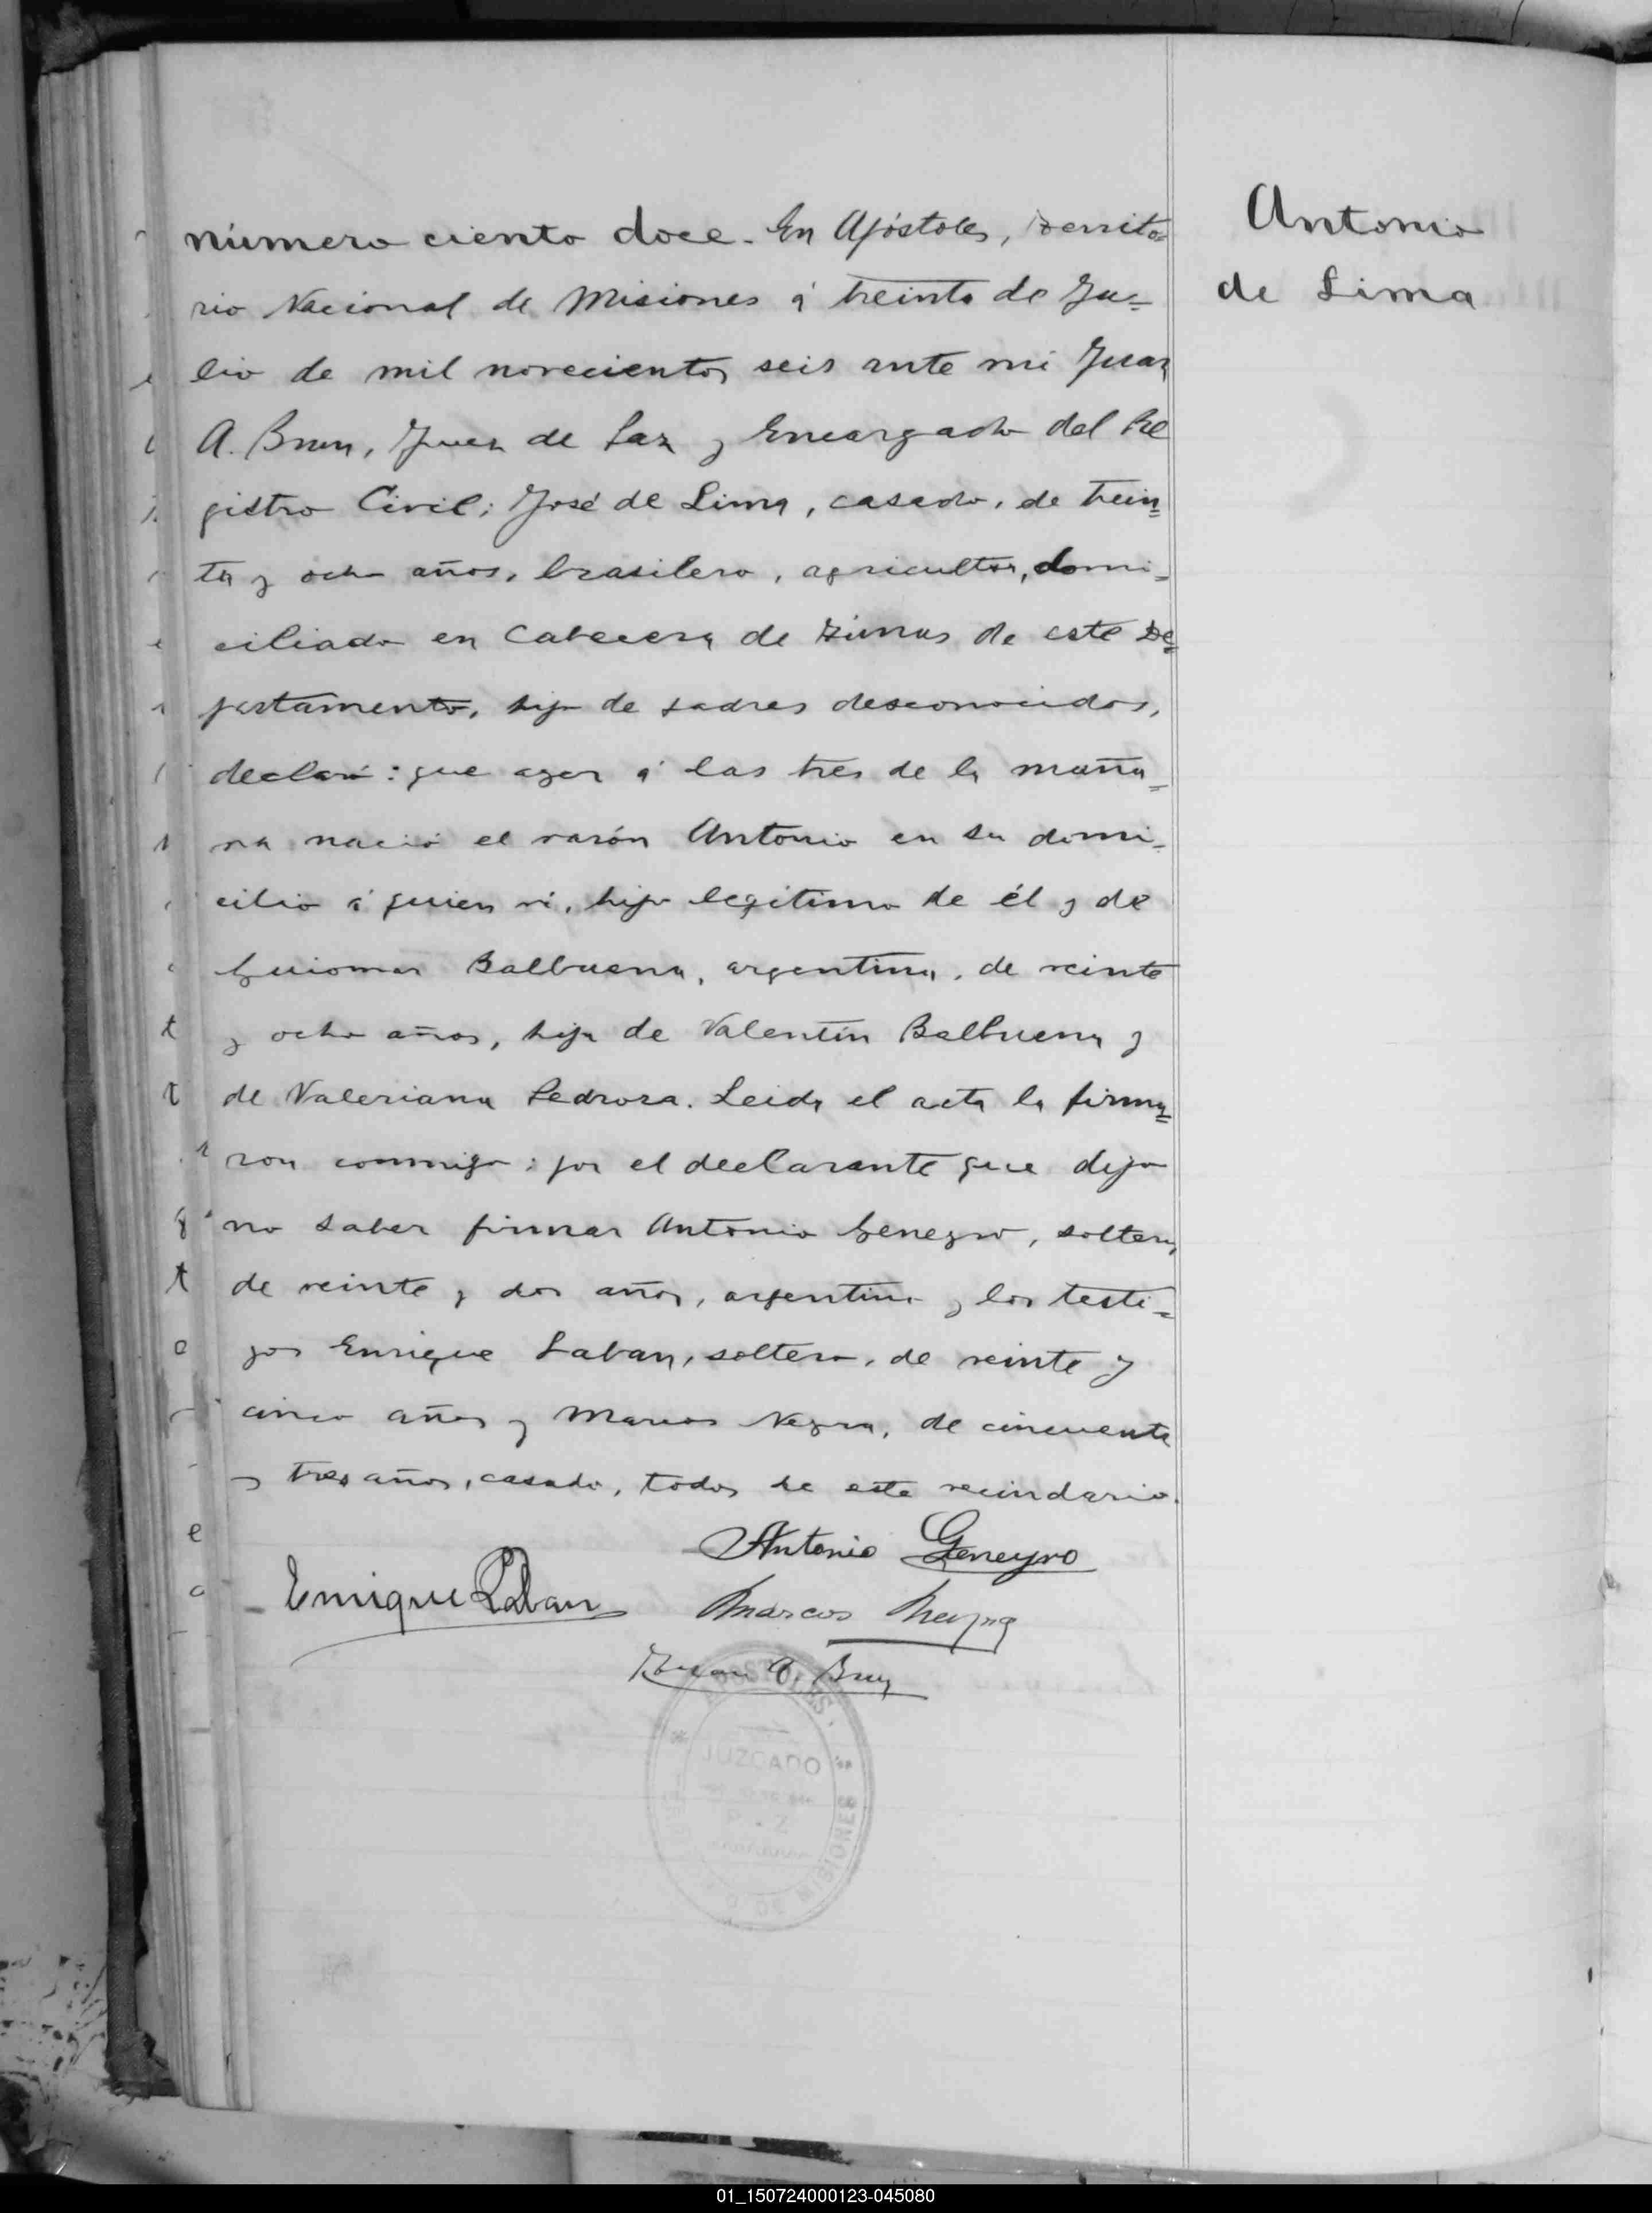 número ciento doce. En Apóstoles, Territo=
rio Nacional de Misiones á treinta de Ju=
lio de mil novecientos seis ante mi Juan
A. Brun, Juez de Paz y Encargado del Re
gistro Civil; José de Lima, casado, de trein=
ta y ocho años, brasilero, agricultor, domi=
ciliado en Cabecera de de este De=
partamento, hijo de padres desconocidos,
declaró: que ayer á las tres de la maña=
na nació el varón Antonio en su domi=
cilio á quien ví, hijo legítimo de él y de
Guiomar Balbuena, argentina, de veinte
y ocho años, hija de Valentín Balbuena y
de Valeriana Pedroza. Leida el acta la firma=
ron conmigo: por el declarante que dijo
no saber firmar Antonio Geneyro, soltero,
de veinte y dos años, argentino y los testi=
gos Enrique Laban, soltero, de veinte y
cinco años y Marcos de cincuenta
y tres años, casado, todos de este vecindario.
Antonio Geneyro
Enrique Laban
Marcos
Juan A. Brun
Antonio
de Lima
APOSTOLES
JUZGADO
MISIONES
01_150724000123-045080